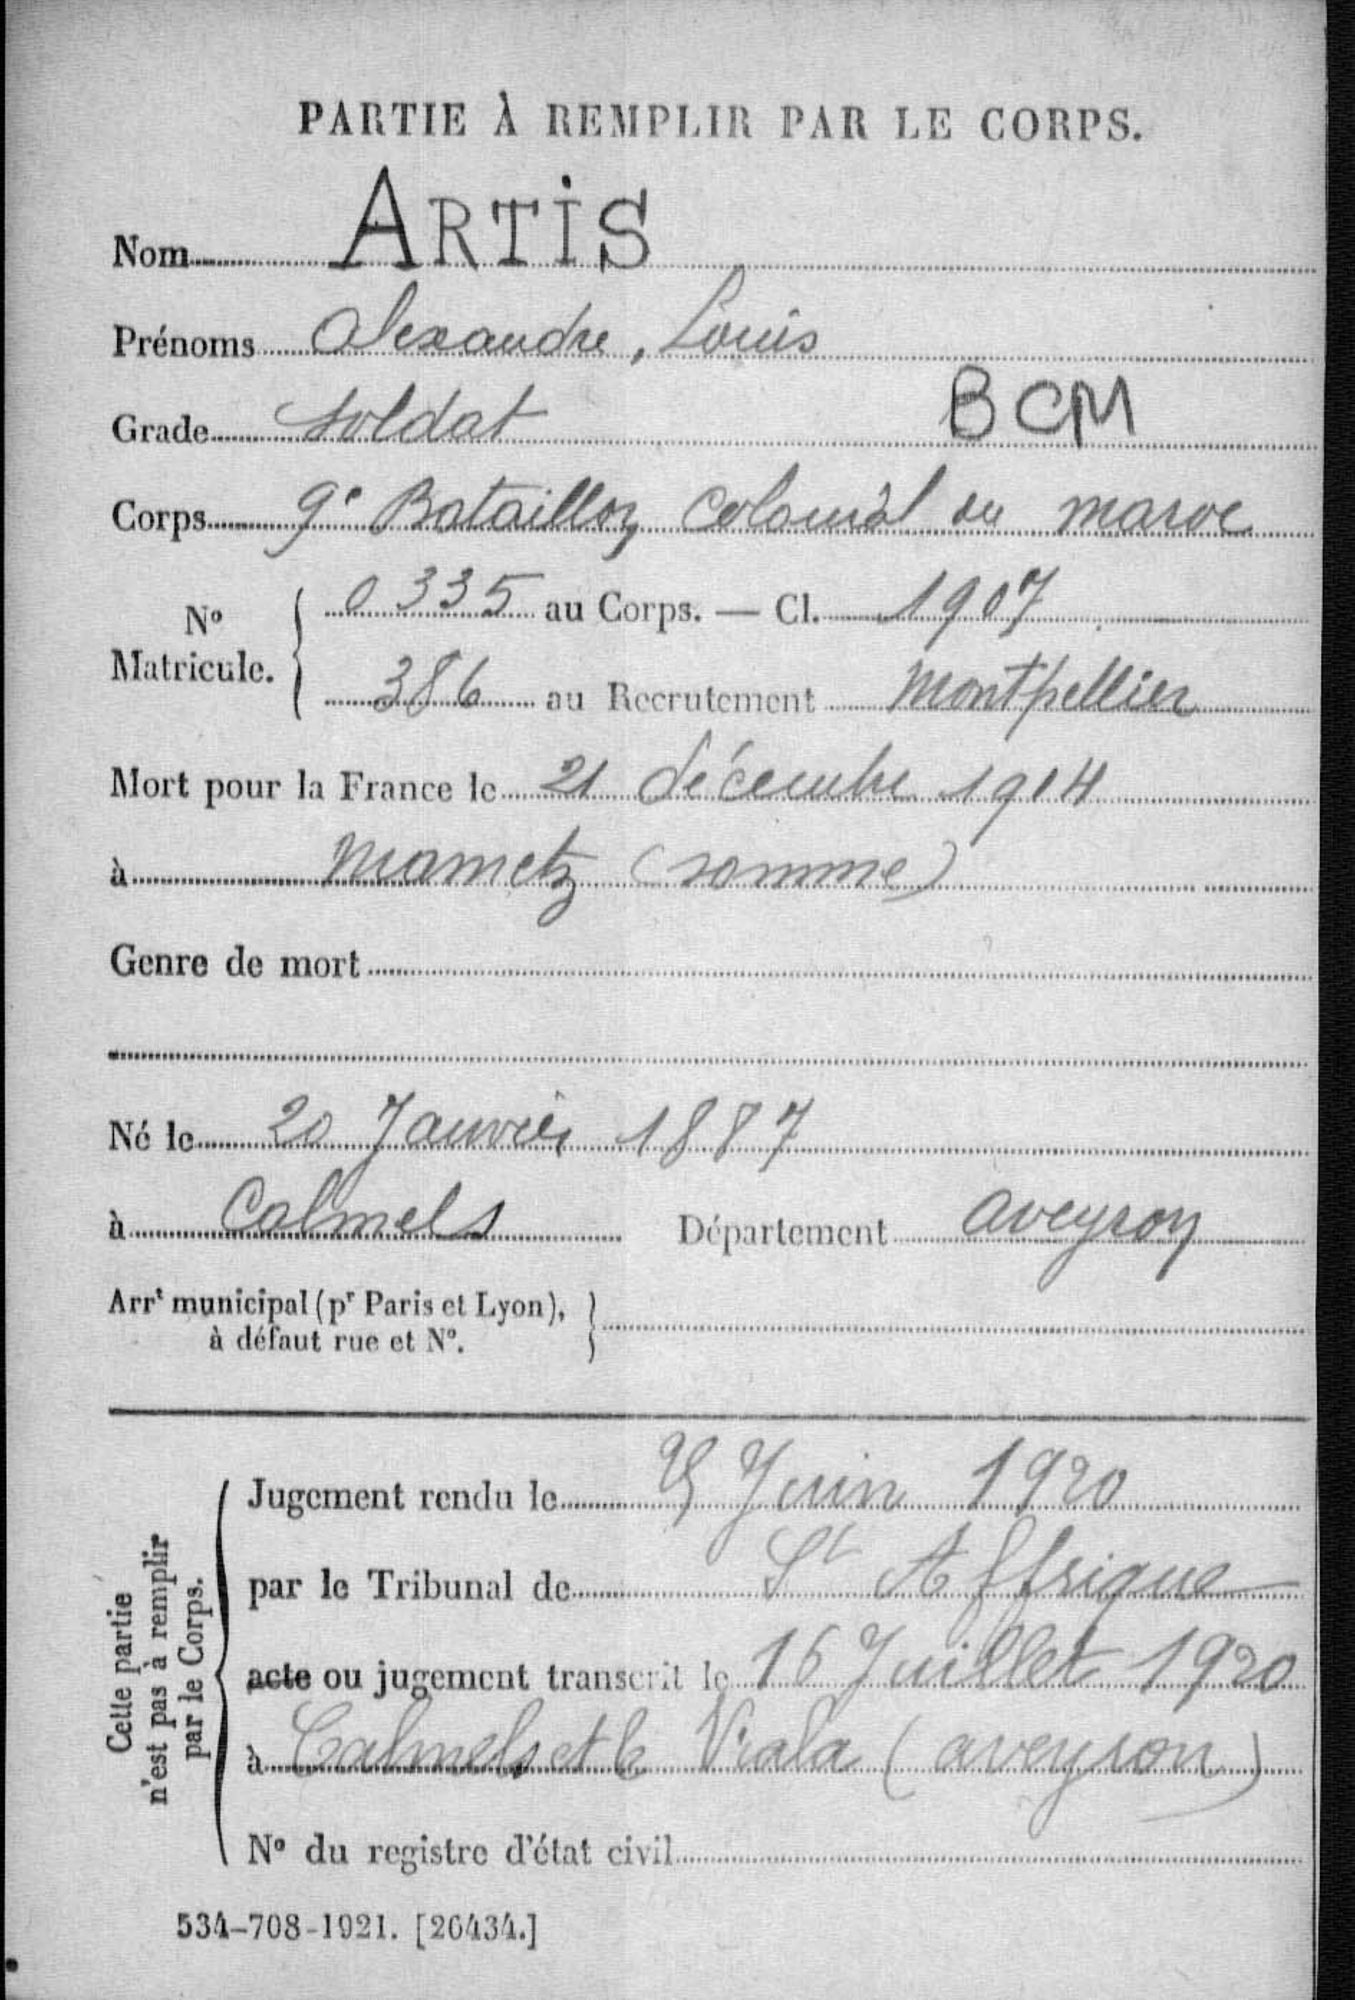 PARTIE À REMPLIR PAR LE CORPS.
Nom ARTIS
Prénoms Alexandre, Louis
Grade Soldat BCM
Corps 9e Bataillon Colonial du maroc
N° Matricule. 0335 au Corps. — Cl. 1907
386 au Recrutement Montpellier
Mort pour la France le 21 décembre 1914
à Mametz (somme)
Genre de mort
Né le 20 Janvier 1887
à Calmels Département aveyron
Arrt municipal (pr Paris et Lyon),
à défaut rue et N°.
Cette partie
n'est pas à remplir
par le Corps.
Jugement rendu le 25 Juin 1920
par le Tribunal de St Affrique
acte ou jugement transcrit le 16 Juillet 1920
à Calmels et le Viala (aveyron)
N° du registre d'état civil
534-708-1921. [26434.]